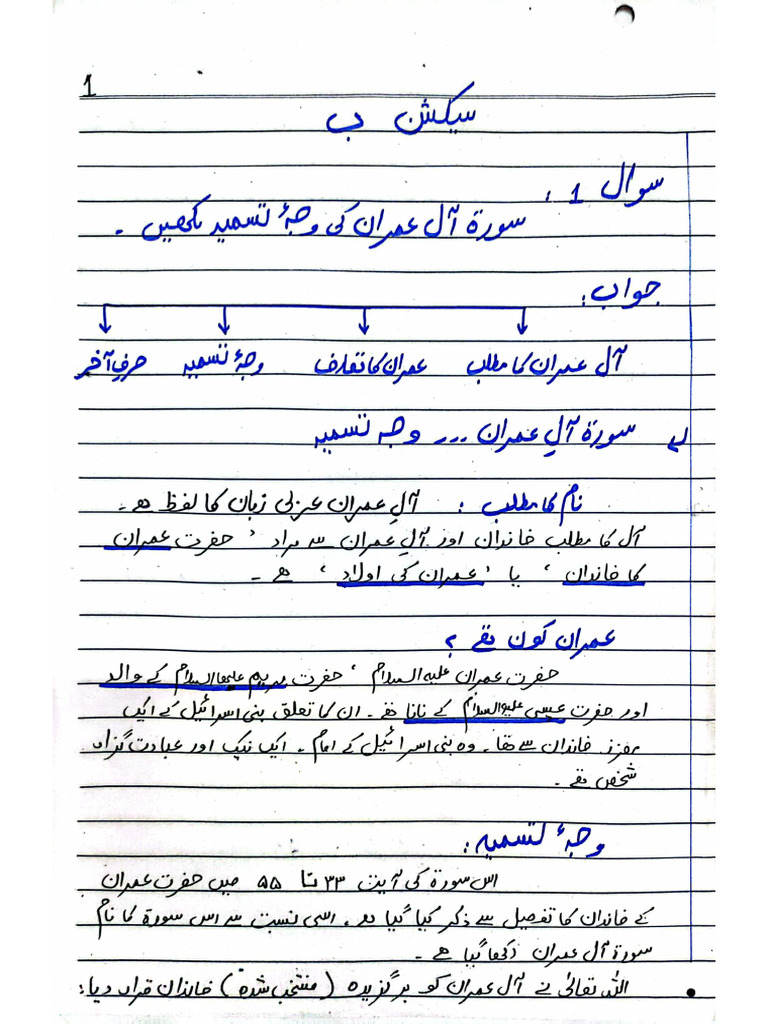 1
سیکشن ب
سوال 1 :
سورۃ آل عمران کی وجۂ تسمیہ لکھیں ۔
جواب :
آل عمران کا مطلب عمران کا تعارف وجۂ تسمیہ حرفِ آخر
سورۃ آلِ عمران ۔۔۔ وجہ تسمیہ
نام کا مطلب : آلِ عمران عربی زبان کا لفظ ہے ۔
آل کا مطلب خاندان اور آلِ عمران سے مراد ' حضرت عمران
کا خاندان ' یا ' عمران کی اولاد ' ہے ۔
عمران کون تھے ؟
حضرت عمران علیہ السلام ' حضرت مریم علیہا السلام کے والد
اور حضرت عیسیٰ علیہ السلام کے نانا تھے ۔ ان کا تعلق بنی اسرائیل کے ایک
معزز خاندان سے تھا ۔ وہ بنی اسرائیل کے امام ۔ ایک نیک اور عبادت گزار
شخص تھے ۔
وجۂ تسمیہ :
اس سورۃ کی آیت ۳۳ تا ۵۵ میں حضرت عمران
کے خاندان کا تفصیل سے ذکر کیا گیا ہے ۔ اسی نسبت سے اس سورۃ کا نام
سورۃ آل عمران رکھا گیا ہے ۔
• اللہ تعالیٰ نے آل عمران کو برگزیدہ ( منتخب شدہ ) خاندان قرار دیا :